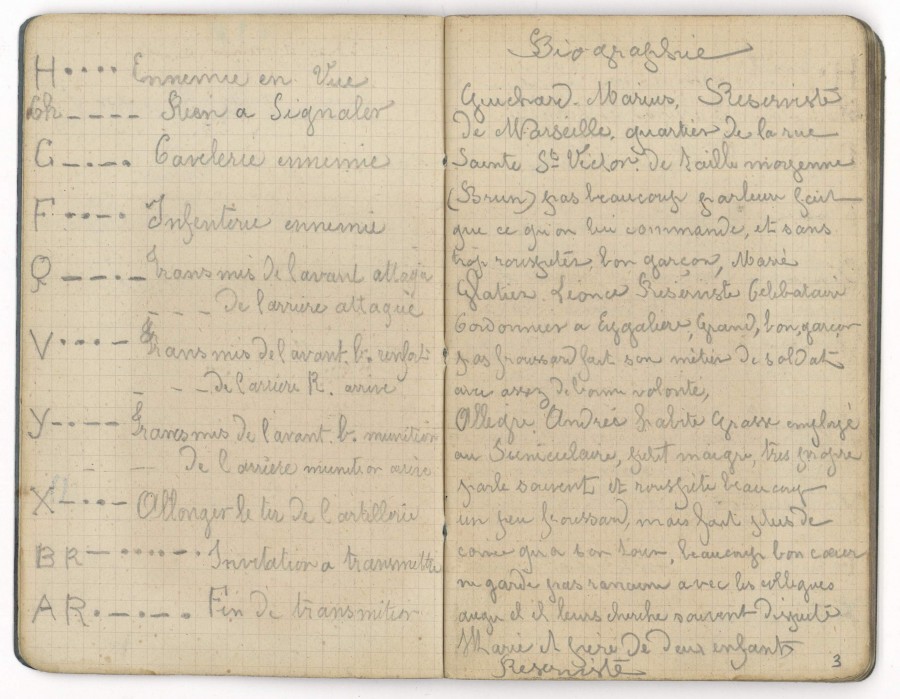 H •••• Ennemie en Vue
Ch ---- Rien a Signaler
C -•-• Cavelerie ennemie
F ••-• Infenterie ennemie
Q --•- Transmis de l'avant attaqué
--- de l'arriere attaqué
V •••- Transmis de l'avant. b. renfort
- - - de l'arriére R. arrive
Y -•-- Transmis de l'avant. b. munition
- - - de l'arriére munition arive
X -••- Allonger le tir de l'artillerie
BR -•••••-• Invitation a transmettre
AR. •-•-• Fin de transmition
Biographie
Guichard. Marius, Reserviste
de Marseille, quartier de la rue
Sainte St Victor. de taille moyenne
(Brun) pas beaucoup parleur fait
que ce qu'on lui commande, et sans
trop rouspeter, bon garçon, Marié
Glatier. Léonce Reserviste Célibataire
Cordonnier a Eygalier, Grand, bon garçon
pas froussard fait son métier de soldat
avec assez de bonne volonte,
Allegre. André habite Grasse employé
au Funiculaire, petit maigre, très propre
parle souvent et rouspete beaucoup
un peu froussard, mais fait plus de
qu'a son tour, beaucoup bon cœur
ne garde pas rancune avec les collègues
il leurs cherche souvent dispute
Marié et pére de deux enfants
Reserviste
3